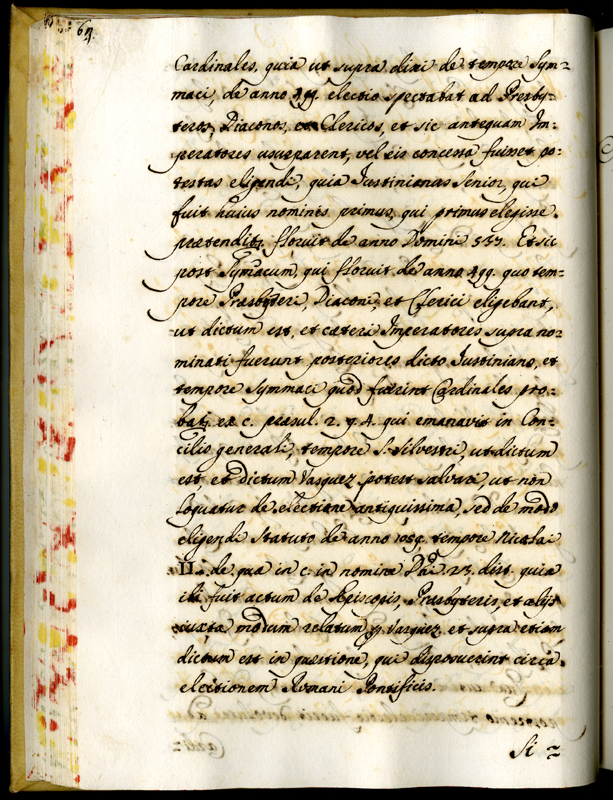 64.
Cardinales, quia ut supra dixi de tempore Sym=
maci, de anno 499. electio spectabat ad Presby=
teros, Diaconos, et Clericos, et sic antequam Im=
peratores usurparent, vel eis concessa fuisset po=
testas eligendi, quia Iustinianus Senior, qui
fuit huius nominis primus, qui primus elegisse
prætenditr. floruit de anno Domini 537. Et sic
post Symacum, qui floruit de anno 499. quo tem=
pore Presbyteri, Diaconi, et Clerici eligebant,
ut dictum est, et cæteri Imperatores supra no=
minati fuerunt posteriores dicto Iustiniano, et
tempore Symmaci quod fuerint Cardinales pro=
batr. ex c. præsul. 2. q. 4. qui emanavit in Con=
cilio generali, tempore S. Silvestri, ut dictum
est, et dictum Vasquez potest salvari, ut non
loquatur de electione antiquissima, sed de modo
eligendi statuto de anno 1059. tempore Nicolai
II. de qua in c. in nomine Dñi 23. dist. quia
ibi fuit actum de Episcopis, Presbyteris, et alijs
iuxta modum relatum p Vasquez et supra etiam
dictum est in quæstione, qui disposuerint circa
electionem Romani Pontificis.
Si